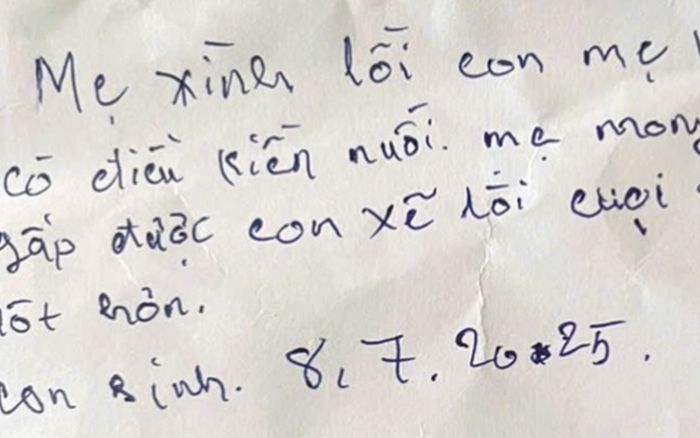 Mẹ xình lỗi con mẹ
có điều kiến nuối. mẹ mong
gấp được con xẽ lội cuọi
tốt hơn.
con sinh. 8, 7. 2025.